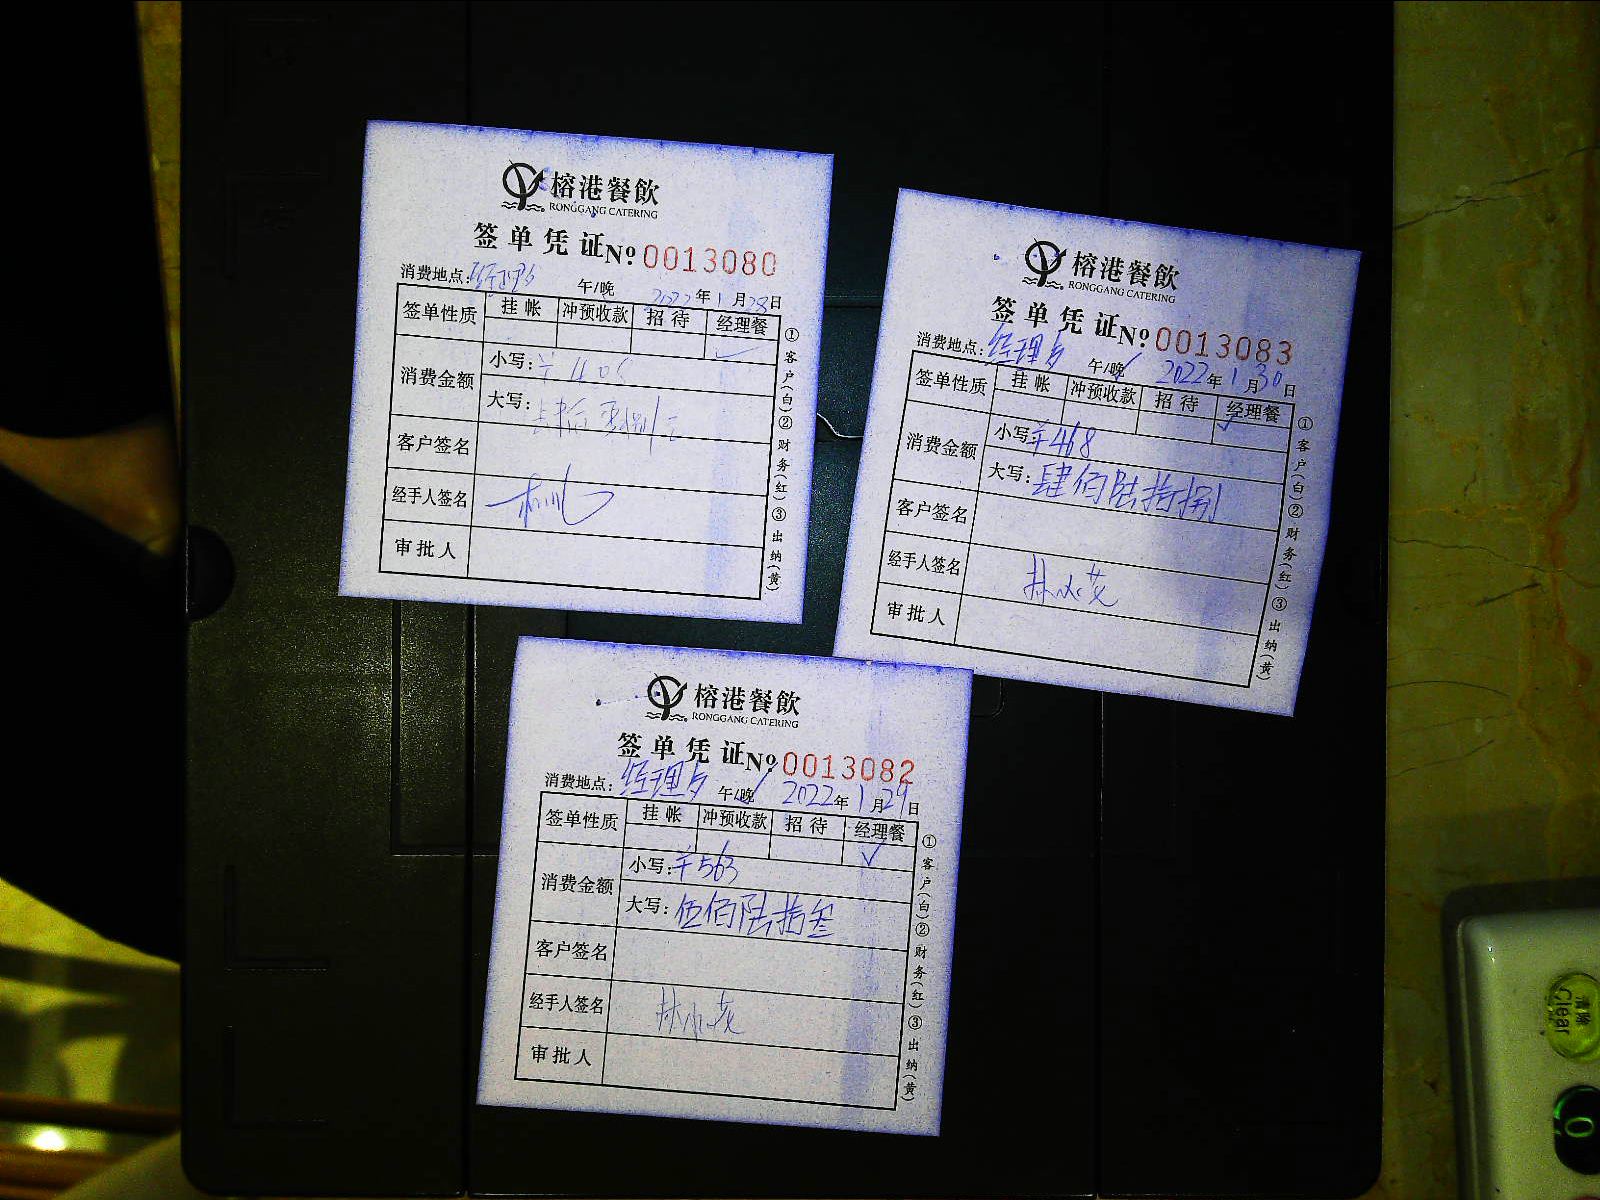 榕港餐飲
RONGGANG CATERING
签单凭证№0013080
消费地点: 午/晚 2022年1月28日
签单性质 挂帐 冲预收款 招待 经理餐
✓
消费金额 小写:¥
大写:
客户签名
经手人签名
审批人
①客户(白)②财务(红)③出纳(黄)
榕港餐飲
RONGGANG CATERING
签单凭证№0013083
消费地点:经理 午/晚✓ 2022年1月30日
签单性质 挂帐 冲预收款 招待 经理餐
✓
消费金额 小写:¥468
大写:肆佰陆拾捌
客户签名
经手人签名
审批人
①客户(白)②财务(红)③出纳(黄)
榕港餐飲
RONGGANG CATERING
签单凭证№0013082
消费地点:经理 午/晚✓ 2022年1月29日
签单性质 挂帐 冲预收款 招待 经理餐
✓
消费金额 小写:¥563
大写:伍佰陆拾叁
客户签名
经手人签名
审批人
①客户(白)②财务(红)③出纳(黄)
清除
Clear
0